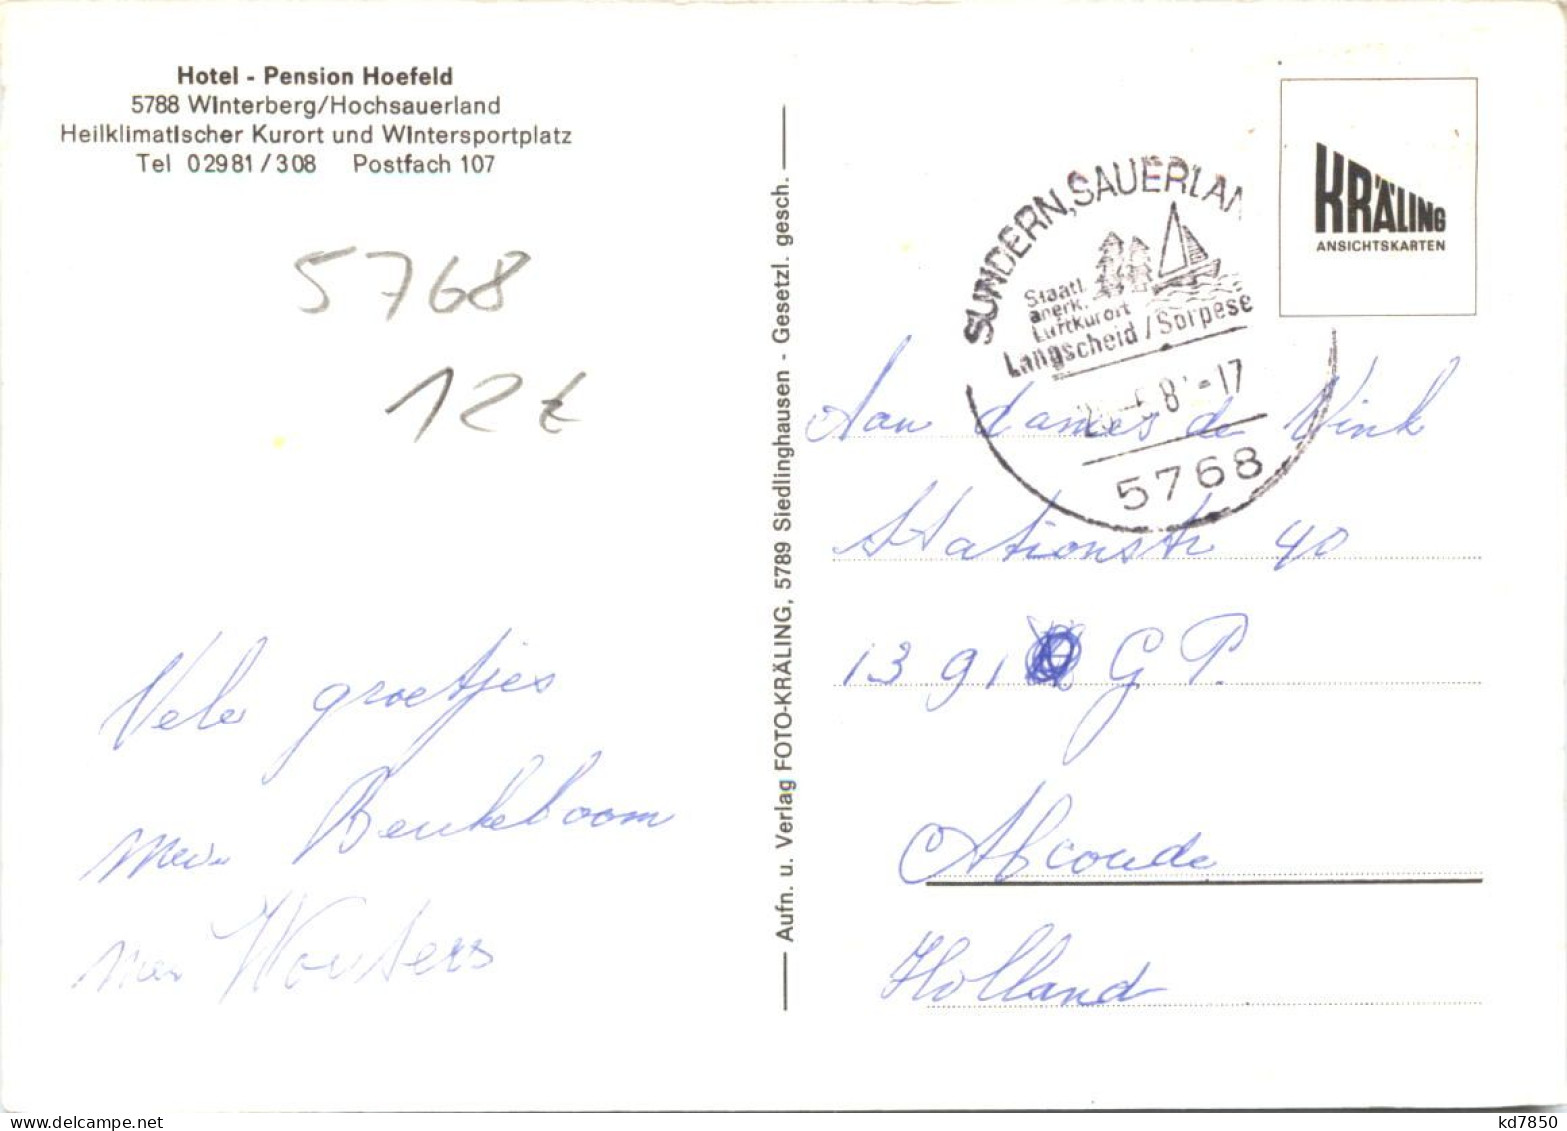 Hotel - Pension Hoefeld
5788 Winterberg/Hochsauerland
Heilklimatischer Kurort und Wintersportplatz
Tel 02981/308 Postfach 107
5768
12 €
Vele groetjes
mevr Beukeboom
mevr Wouters
Aufn. u. Verlag FOTO-KRÄLING, 5789 Siedlinghausen - Gesetzl. gesch.
KRÄLING
ANSICHTSKARTEN
SUNDERN, SAUERLAN
Staatl.
anerk.
Luftkurort
Langscheid / Sorpese
8 -17
5768
Aan dames de Vink
Stationstr 40
1391 G P.
Abcoude
Holland
kd7850